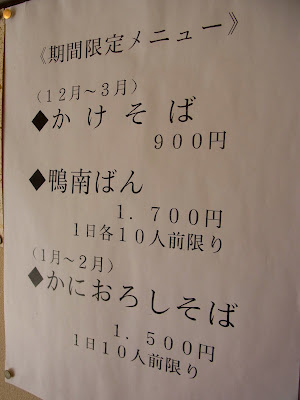 《期間限定メニュー》
（１２月～３月）
◆かけそば
９００円
◆鴨南ばん
１．７００円
１日各１０人前限り
（１月～２月）
◆かにおろしそば
１．５００円
１日１０人前限り